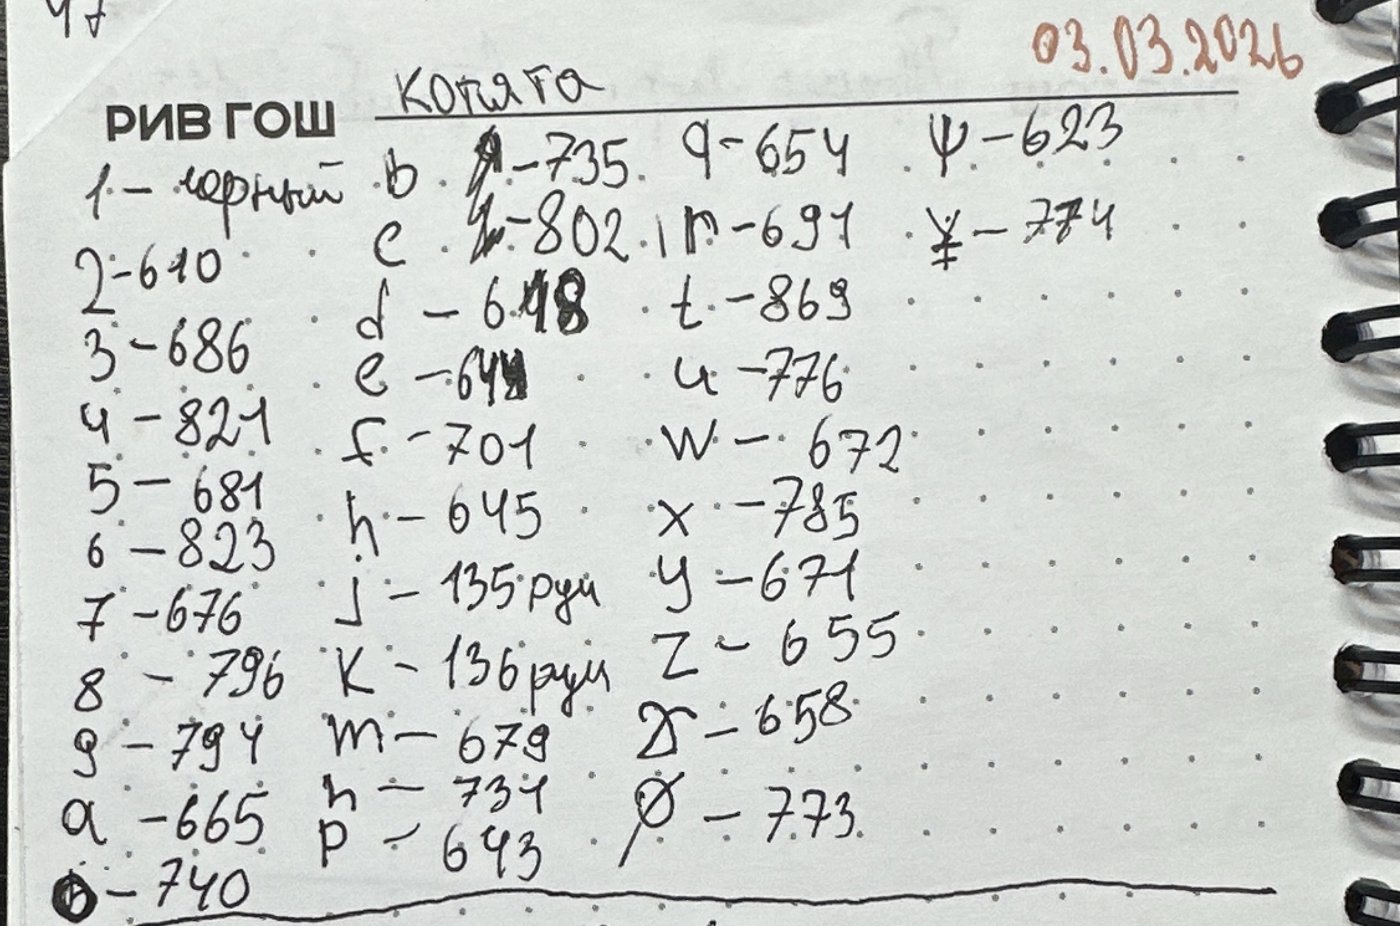 47
03.03.2026
РИВ ГОШ котята
1 - чорный
2 - 610
3 - 686
4 - 821
5 - 681
6 - 823
7 - 676
8 - 796
9 - 794
a - 665
- 740
b - 735
c - 802
d - 618
e - 644
f - 701
h - 645
j - 135 руч
K - 136 руч
m - 679
n - 731
p - 643
q - 654
r - 691
t - 869
u - 776
w - 672
x - 785
y - 671
z - 655
- 658
Ø - 773
Ψ - 623
¥ - 774